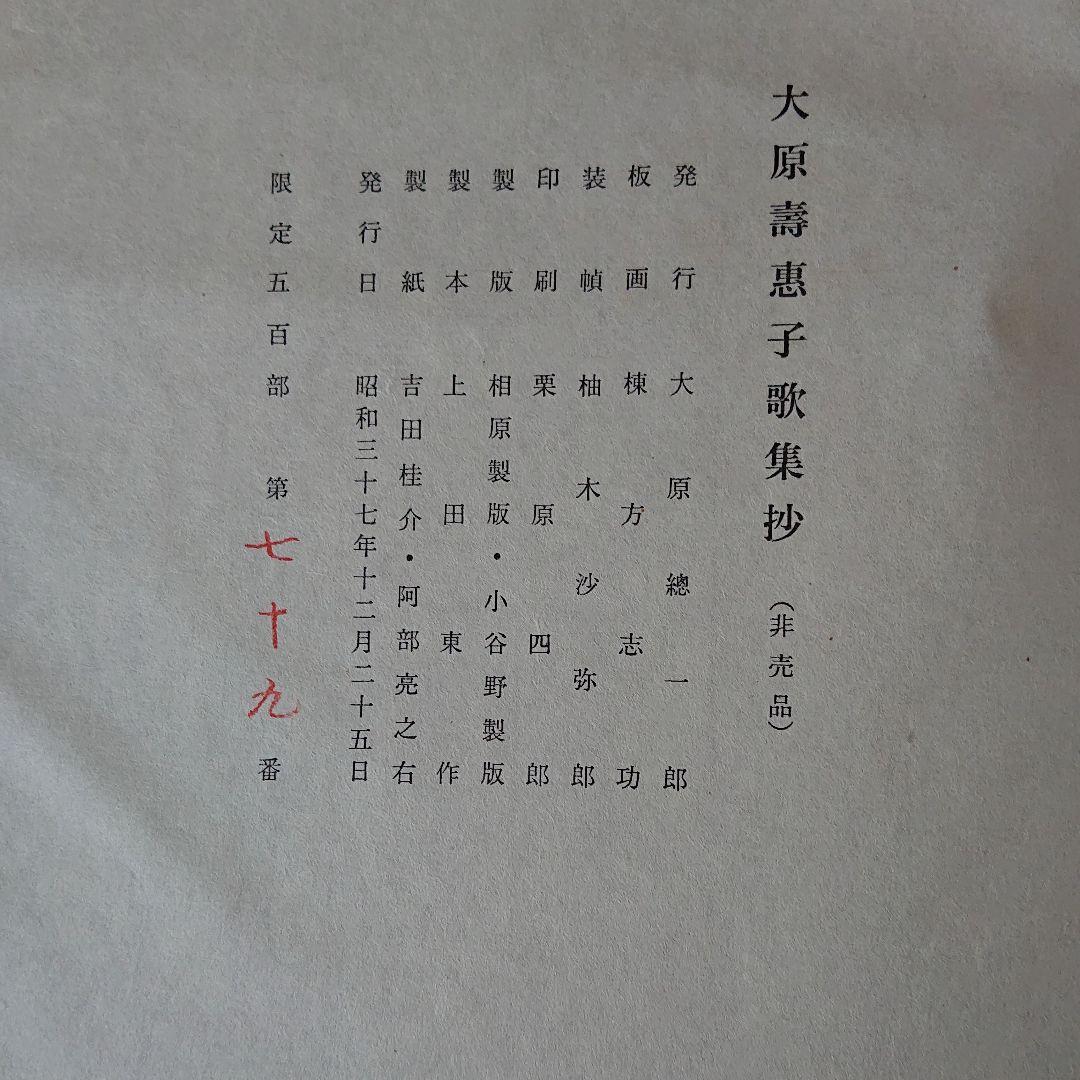 大原壽惠子歌集抄 (非売品)
発行 大原總一郎
板画 棟方志功
装幀 柚木沙弥郎
印刷 栗原四郎
製版 相原製版・小谷野製版
製本 上田東作
製紙 吉田桂介・阿部亮之右
発行日 昭和三十七年十二月二十五日
限定五百部 第七十九番